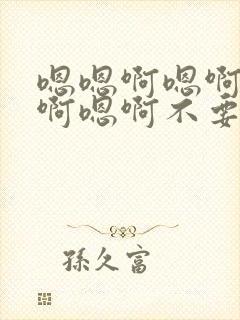 嗯嗯啊嗯啊
啊嗯啊不要
孫久富